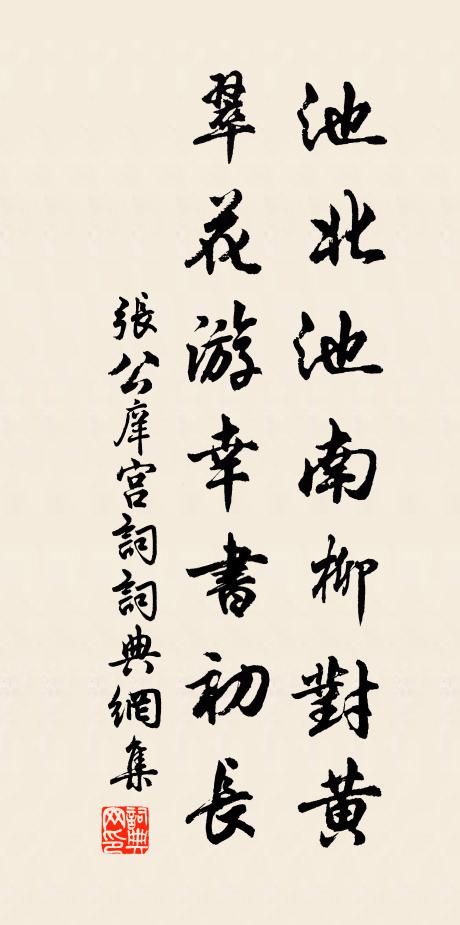 池北池南柳對黃
翠花游幸書初長
張公庠宮詞詞典網集
詞典网印